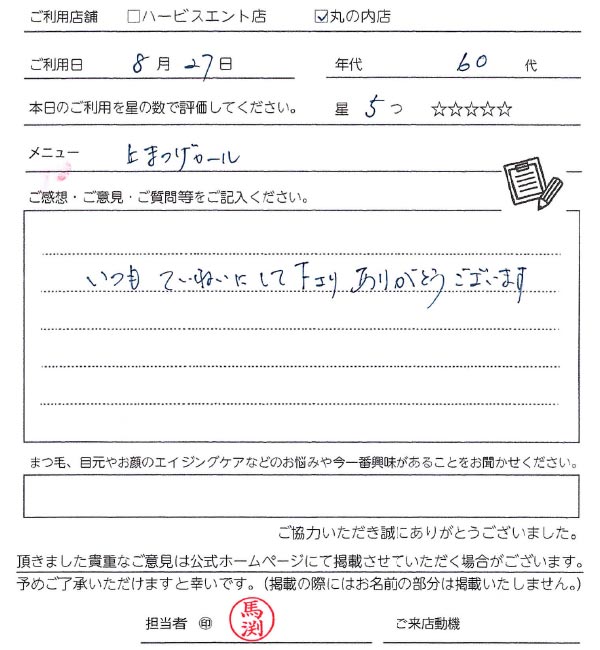 ご利用店舗 □ハービスエント店 ☑丸の内店
ご利用日 8月27日 年代 60代
本日のご利用を星の数で評価してください。 星 5つ ☆☆☆☆☆
メニュー 上まつげカール
ご感想・ご意見・ご質問等をご記入ください。
いつも ていねいにして下さり ありがとうございます
まつ毛、目元やお顔のエイジングケアなどのお悩みや今一番興味があることをお聞かせください。
ご協力いただき誠にありがとうございました。
頂きました貴重なご意見は公式ホームページにて掲載させていただく場合がございます。
予めご了承いただけますと幸いです。(掲載の際にはお名前の部分は掲載いたしません。)
担当者 ㊞ 馬渕 ご来店動機